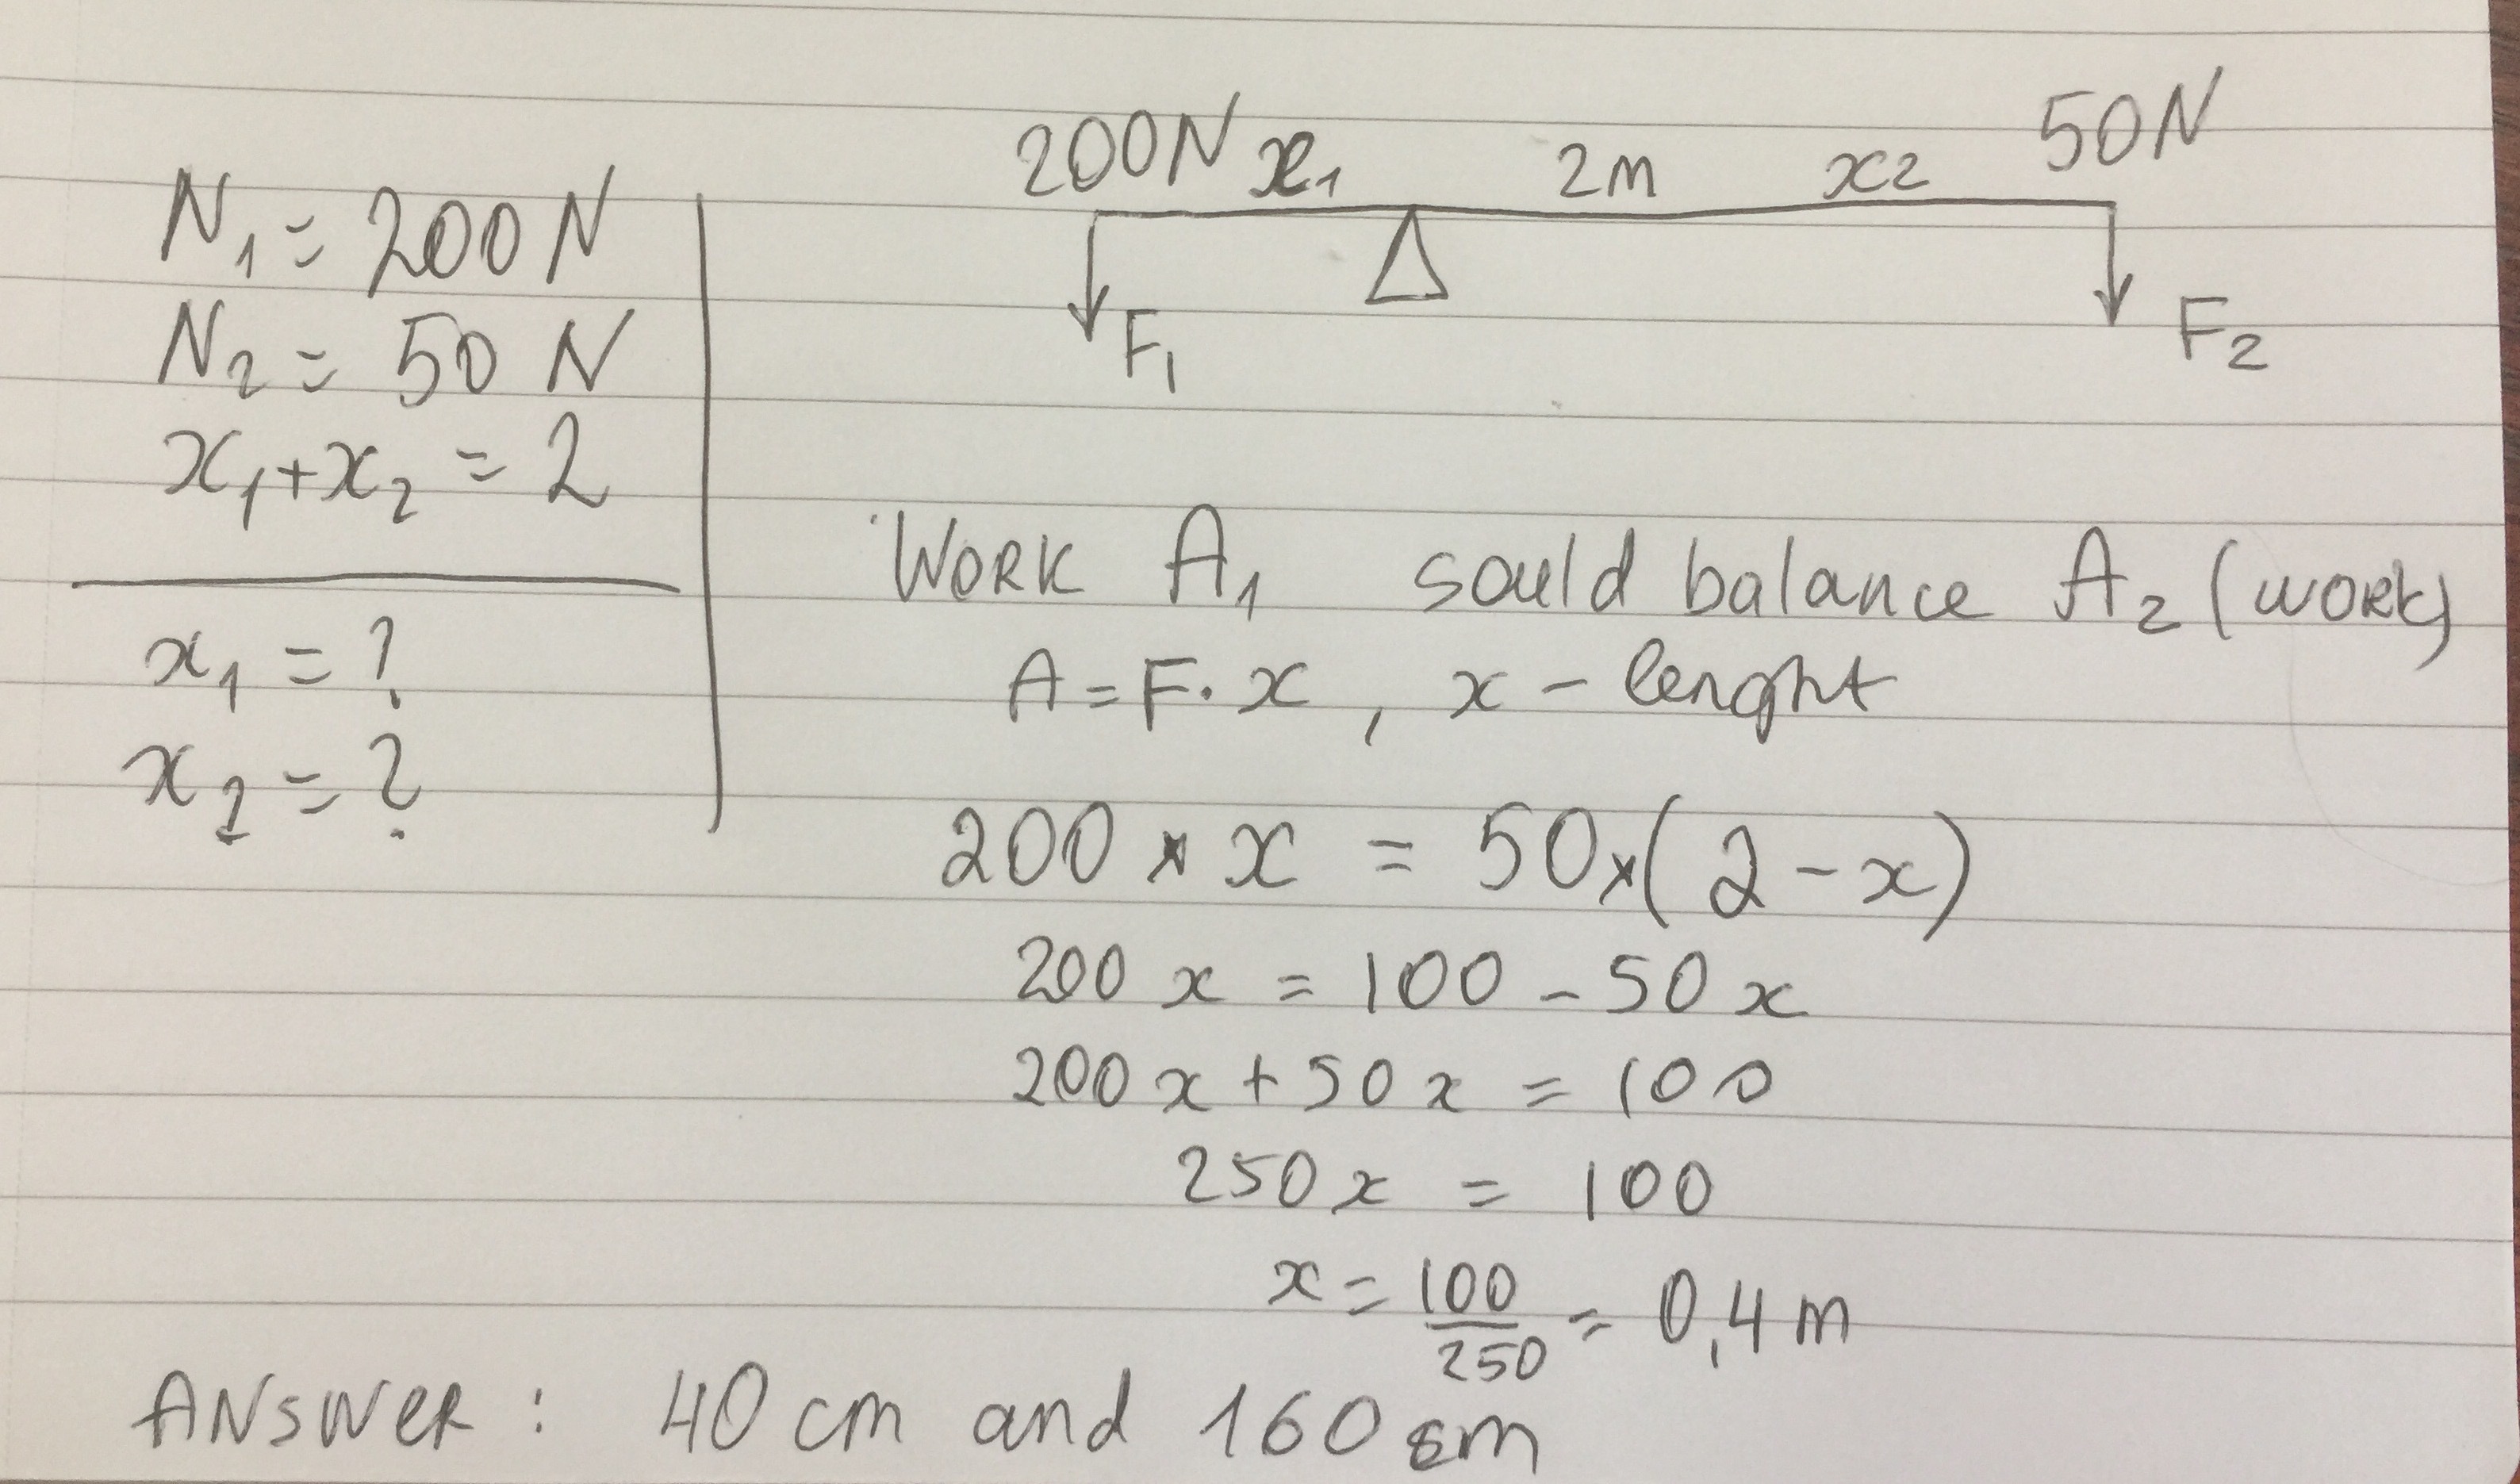 200N x₁ 2m x₂ 50N
F₁ F₂
N₁ = 200 N
N₂ = 50 N
x₁+x₂ = 2
x₁ = ?
x₂ = ?
WORK A₁ sould balance A₂ (work)
A = F · x , x – lenght
200 * x = 50 × (2 - x)
200 x = 100 - 50 x
200 x + 50 x = 100
250 x = 100
x = 100/250 = 0,4 m
ANSWER : 40 cm and 160 cm